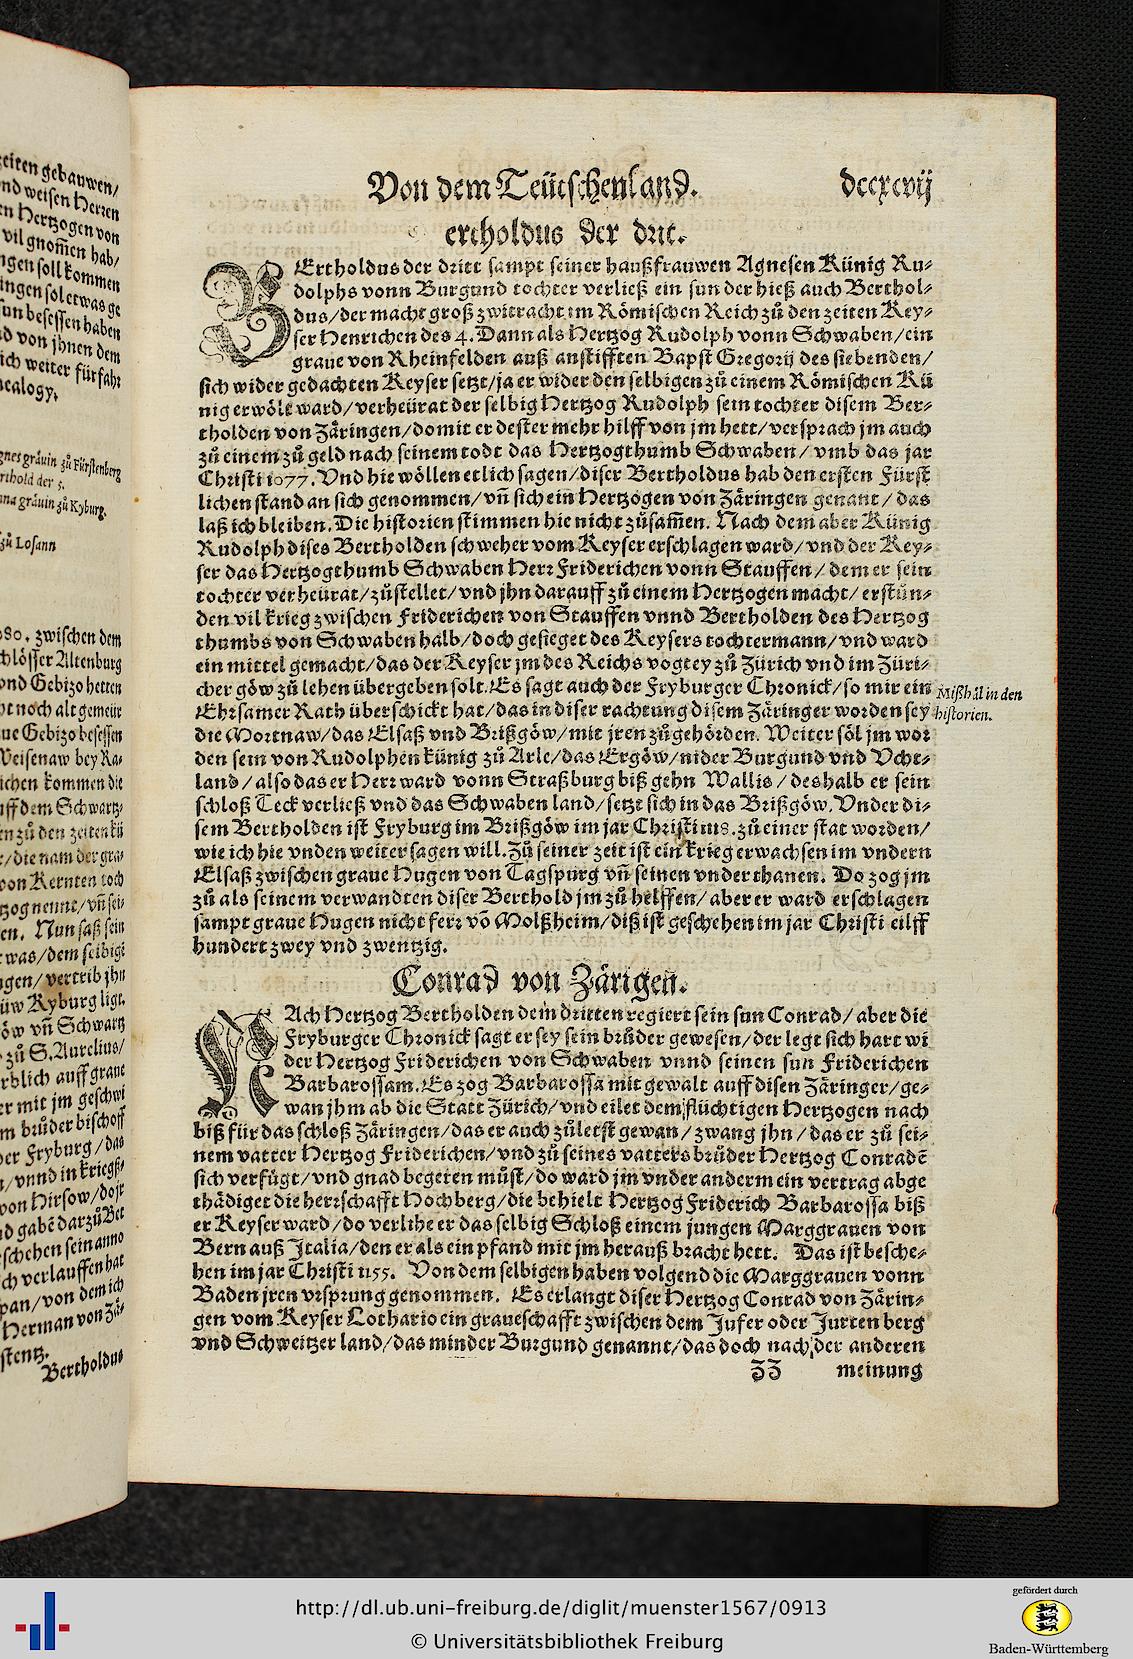 Von dem Teütschenland. dccxcvij
ertholdus der drit.
BErtholdus der dritt sampt seiner haußfrauwen Agnesen Künig Ru-
dolphs vonn Burgund tochter verließ ein sun der hieß auch Berthol-
dus/der macht groß zwitracht im Römischen Reich zů den zeiten Key-
ser Henrichen des 4. Dann als Hertzog Rudolph vonn Schwaben/ein
graue von Rheinfelden auß anstifften Bapst Gregorij des siebenden/
sich wider gedachten Keyser setzt/ja er wider den selbigen zů einem Römischen Kü
nig erwölt ward/verheürat der selbig Hertzog Rudolph sein tochter disem Ber-
tholden von Zäringen/domit er dester mehr hilff von jm hett/versprach jm auch
zů einem zů geld nach seinem todt das Hertzogthumb Schwaben/vmb das jar
Christi 1077. Vnd hie wöllen etlich sagen/diser Bertholdus hab den ersten Fürst
lichen stand an sich genommen/vñ sich ein Hertzogen von Zäringen genant/das
laß ich bleiben. Die historien stimmen hie nicht zůsam̃en. Nach dem aber Künig
Rudolph dises Bertholden schweher vom Keyser erschlagen ward/vnd der Key-
ser das Hertzogthumb Schwaben Herr Friderichen vonn Stauffen/dem er sein
tochter verheürat/zůstellet/vnd jhn darauff zů einem Hertzogen macht/erstůn-
den vil krieg zwischen Friderichen von Stauffen vnnd Bertholden des Hertzog
thumbs von Schwaben halb/doch gesieget des Keysers tochtermann/vnd ward
ein mittel gemacht/das der Keyser jm des Reichs vogtey zů Zürich vnd im Züri-
cher göw zů lehen übergeben solt. Es sagt auch der Fryburger Chronick/so mir ein
Ehrsamer Rath überschickt hat/das in diser rachtung disem Zäringer worden sey
die Mortnaw/das Elsaß vnd Brißgöw/mit jren zůgehörden. Weiter söl jm wor
den sein von Rudolphen künig zů Arle/das Ergöw/nider Burgund vnd Vcht-
land/also das er Herr ward vonn Straßburg biß gehn Wallis/deshalb er sein
schloß Teck verließ vnd das Schwaben land/setzt sich in das Brißgöw. Vnder di-
sem Bertholden ist Fryburg im Brißgöw im jar Christi 1118. zů einer stat worden/
wie ich hie vnden weiter sagen will. Zů seiner zeit ist ein krieg erwachsen im vndern
Elsaß zwischen graue Hugen von Tagspurg vñ seinen vnderthanen. Do zog jm
zů als seinem verwandten diser Berthold jm zů helffen/aber er ward erschlagen
sampt graue Hugen nicht ferr võ Molßheim/diß ist geschehen im jar Christi eilff
hundert zwey vnd zwentzig.
Mißhäl in den
historien.
Conrad von Zärigen.
NAch Hertzog Bertholden dem dritten regiert sein sun Conrad/aber die
Fryburger Chronick sagt er sey sein brůder gewesen/der legt sich hart wi
der Hertzog Friderichen von Schwaben vnnd seinen sun Friderichen
Barbarossam. Es zog Barbarossa mit gewalt auff disen Zäringer/ge-
wan jhm ab die Statt Zürich/vnd eilet dem flüchtigen Hertzogen nach
biß für das schloß Zäringen/das er auch zůletst gewan/zwang jhn/das er zů sei-
nem vatter Hertzog Friderichen/vnd zů seines vatters brůder Hertzog Conradẽ
sich verfügt/vnd gnad begeren můst/do ward jm vnder anderm ein vertrag abge
thädiget die herrschafft Hochberg/die behielt Hertzog Friderich Barbarossa biß
er Keyser ward/do verlihe er das selbig Schloß einem jungen Marggrauen von
Bern auß Italia/den er als ein pfand mit jm herauß bracht hett. Das ist besche-
hen im jar Christi 1155. Von dem selbigen haben volgend die Marggrauen vonn
Baden jren vrsprung genommen. Es erlangt diser Hertzog Conrad von Zärin-
gen vom Keyser Lothario ein graueschafft zwischen dem Jufer oder Jurten berg
vnd Schweitzer land/das minder Burgund genannt/das doch nach der anderen
ZZ meinung
eiten gebauwen/
nd weisen Herren
n Hertzogen von
vil gnom̃en hab/
ngen soll kommen
ingen sol etwas ge
sun besessen haben
d von jhnen dem
ich weiter fürfahr
nealogy.
gnes gräuin zů Fürstenberg
rthold der 5.
nna gräuin zů Kyburg.
zů Losann
080. zwischen dem
chlösser Altenburg
vnd Gebizo hetten
ht noch alt gemeür
ue Gebizo besessen
Weisenaw bey Ra-
ichen kommen die
uff dem Schwartz-
en zů den zeiten kü
/die nam der gra-
von Kernten toch
tzog nennt/vñ sei-
en. Nun saß sein
was/dem selbigẽ
gen/vertrib jhn
üw Kyburg ligt.
öw vñ Schwartz
zů S. Aurelius/
rblich auff graue
er mit jm geschwi
m brůder bischoff
der Fryburg/das
/vnnd in kriegß-
von Hirsow/do jr
nd gabẽ darzů Bet
schehen sein anno
ch verlauffen hat
pan/von dem ich
Herman von Zä-
stentz.
Bertholdus
http://dl.ub.uni-freiburg.de/diglit/muenster1567/0913
© Universitätsbibliothek Freiburg
gefördert durch
Baden-Württemberg